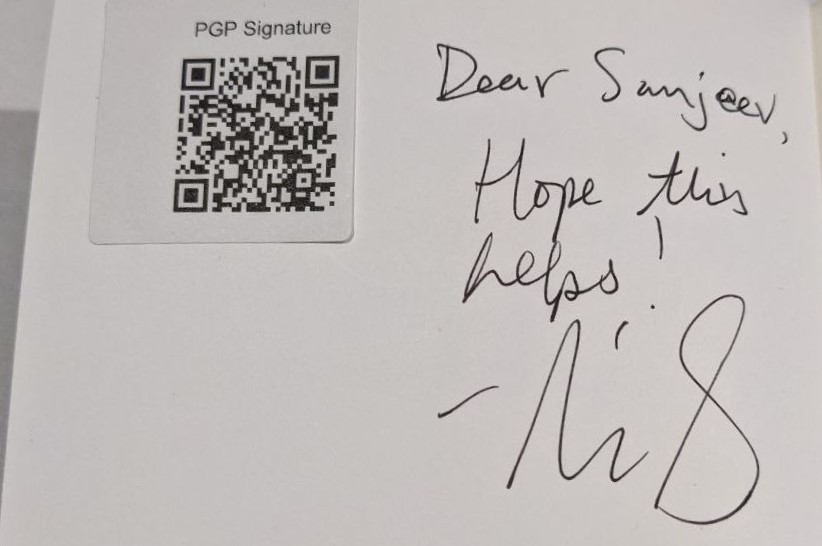 PGP Signature
Dear Sanjeev,
Hope this
helps!